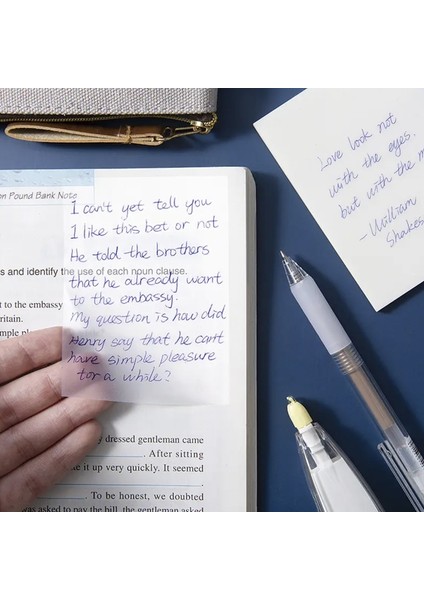 on Pound Bank Note
I can't yet tell you
I like this bet or not
He told the brothers
s and identify the use of each noun clause.
that he already want
t to the embassy
to the embassy.
ritain.
My question is how did
mple
Henry say that he can't
have simple pleasure
for a while?
dressed gentleman came
. After sitting
it up very quickly. It seemed
. To be honest, we doubted
asked to pay the bill, the gentleman asked
Love look not
with the eyes.
but with the m
-William
Shakes